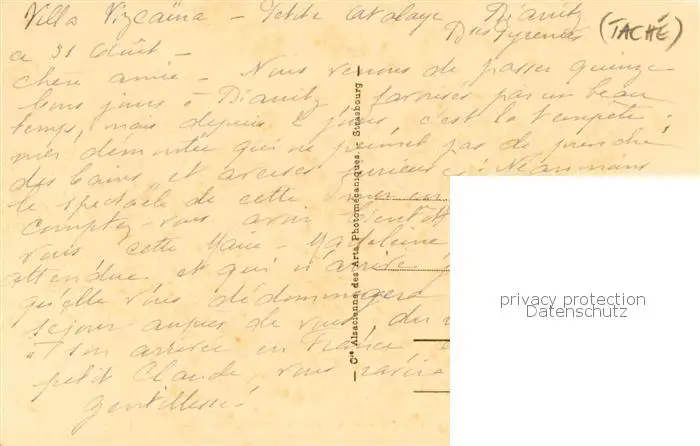 Villa Vizcaïna - Petite Atalaye Biarritz
Bses Pyrénées (TACHÉ)
ce 31 Août -
chère amie - Nous venons de passer quinze
bons jours à Biarritz favorisés par un beau
temps, mais depuis 2 jours c'est la tempête :
mer démontée qui ne permet pas de prendre
des bains et averses furieuses ! Néanmoins
le spectacle de cette mer
comptez-vous avoir bientôt
vous cette Marie-Madeleine
attendue et qui n'arrive
qu'elle vous dédommagera
séjour auprès de vous, du
à son arrivée en France
petit Claude, vous
gentillesse !
Cie Alsacienne des Arts Photomécaniques, Strasbourg
privacy protection
Datenschutz